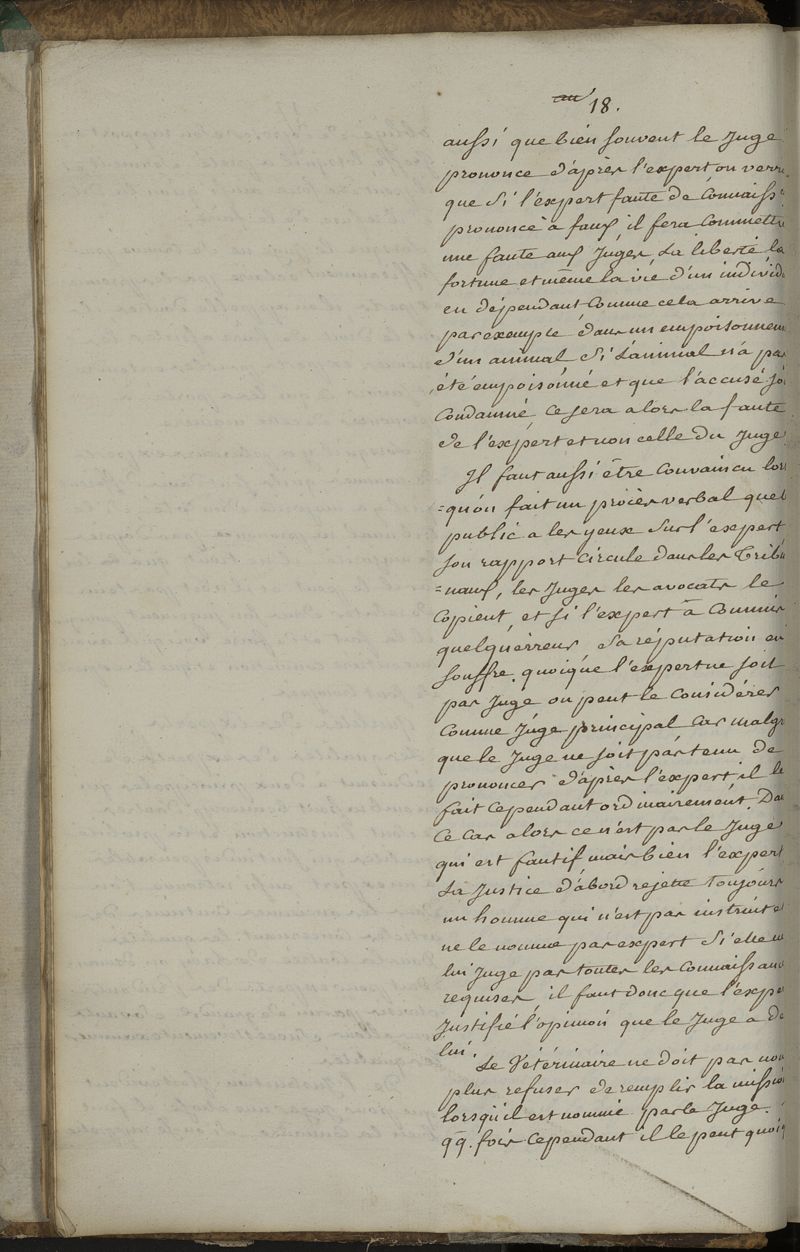 18.
aussi que bien souvent le Juge
prononce d'après l'expert on verra
que Si l'expert faute de Connaiss
prononce à faux, il fera Commettr
une faute aux Juges, La liberté la
fortune et même la vie d'un individ
en dépendant Comme cela arrive
par exemple dans un empoisonnem
d'un animal Si L'animal n'a pas
été empoisonné et que l'accusé soi
Condamné Ce sera alors la faute
de l'expert et non celle du Juge
Il faut aussi être Convaincu lors
=qu'on fait un procès verbal que l
public a les yeux Sur l'expert
son rapport Circule dans les Tribu
=naux, les Juges les avocats le
Copient, et si l'expert à Commis
quelqu'erreur, Sa réputation en
souffre. quoique l'expert ne soit
pas Juge on peut le Considérer
Comme Juge principal Car malgr
que le Juge ne soit pas tenu de
prononcer d'après l'expert, il le
fait Cependant ordinairement. Da
Ce Cas alors ce n'est pas le Juge
qui est fautif mais bien l'expert
La Justice d'abord rejette toujours
un homme qui n'est pas instruit et
ne le nomme pas expert Si elle n
lui Juge pas toutes les Connaissanc
requises, il faut donc que l'expe
Justifie l'opinion que le Juge a de
lui.
Le Vétérinaire ne doit pas non
plus refuser de remplir la missio
lorsqu'il est nommé par le Juge.
qq. fois Cependant il le peut quoiq